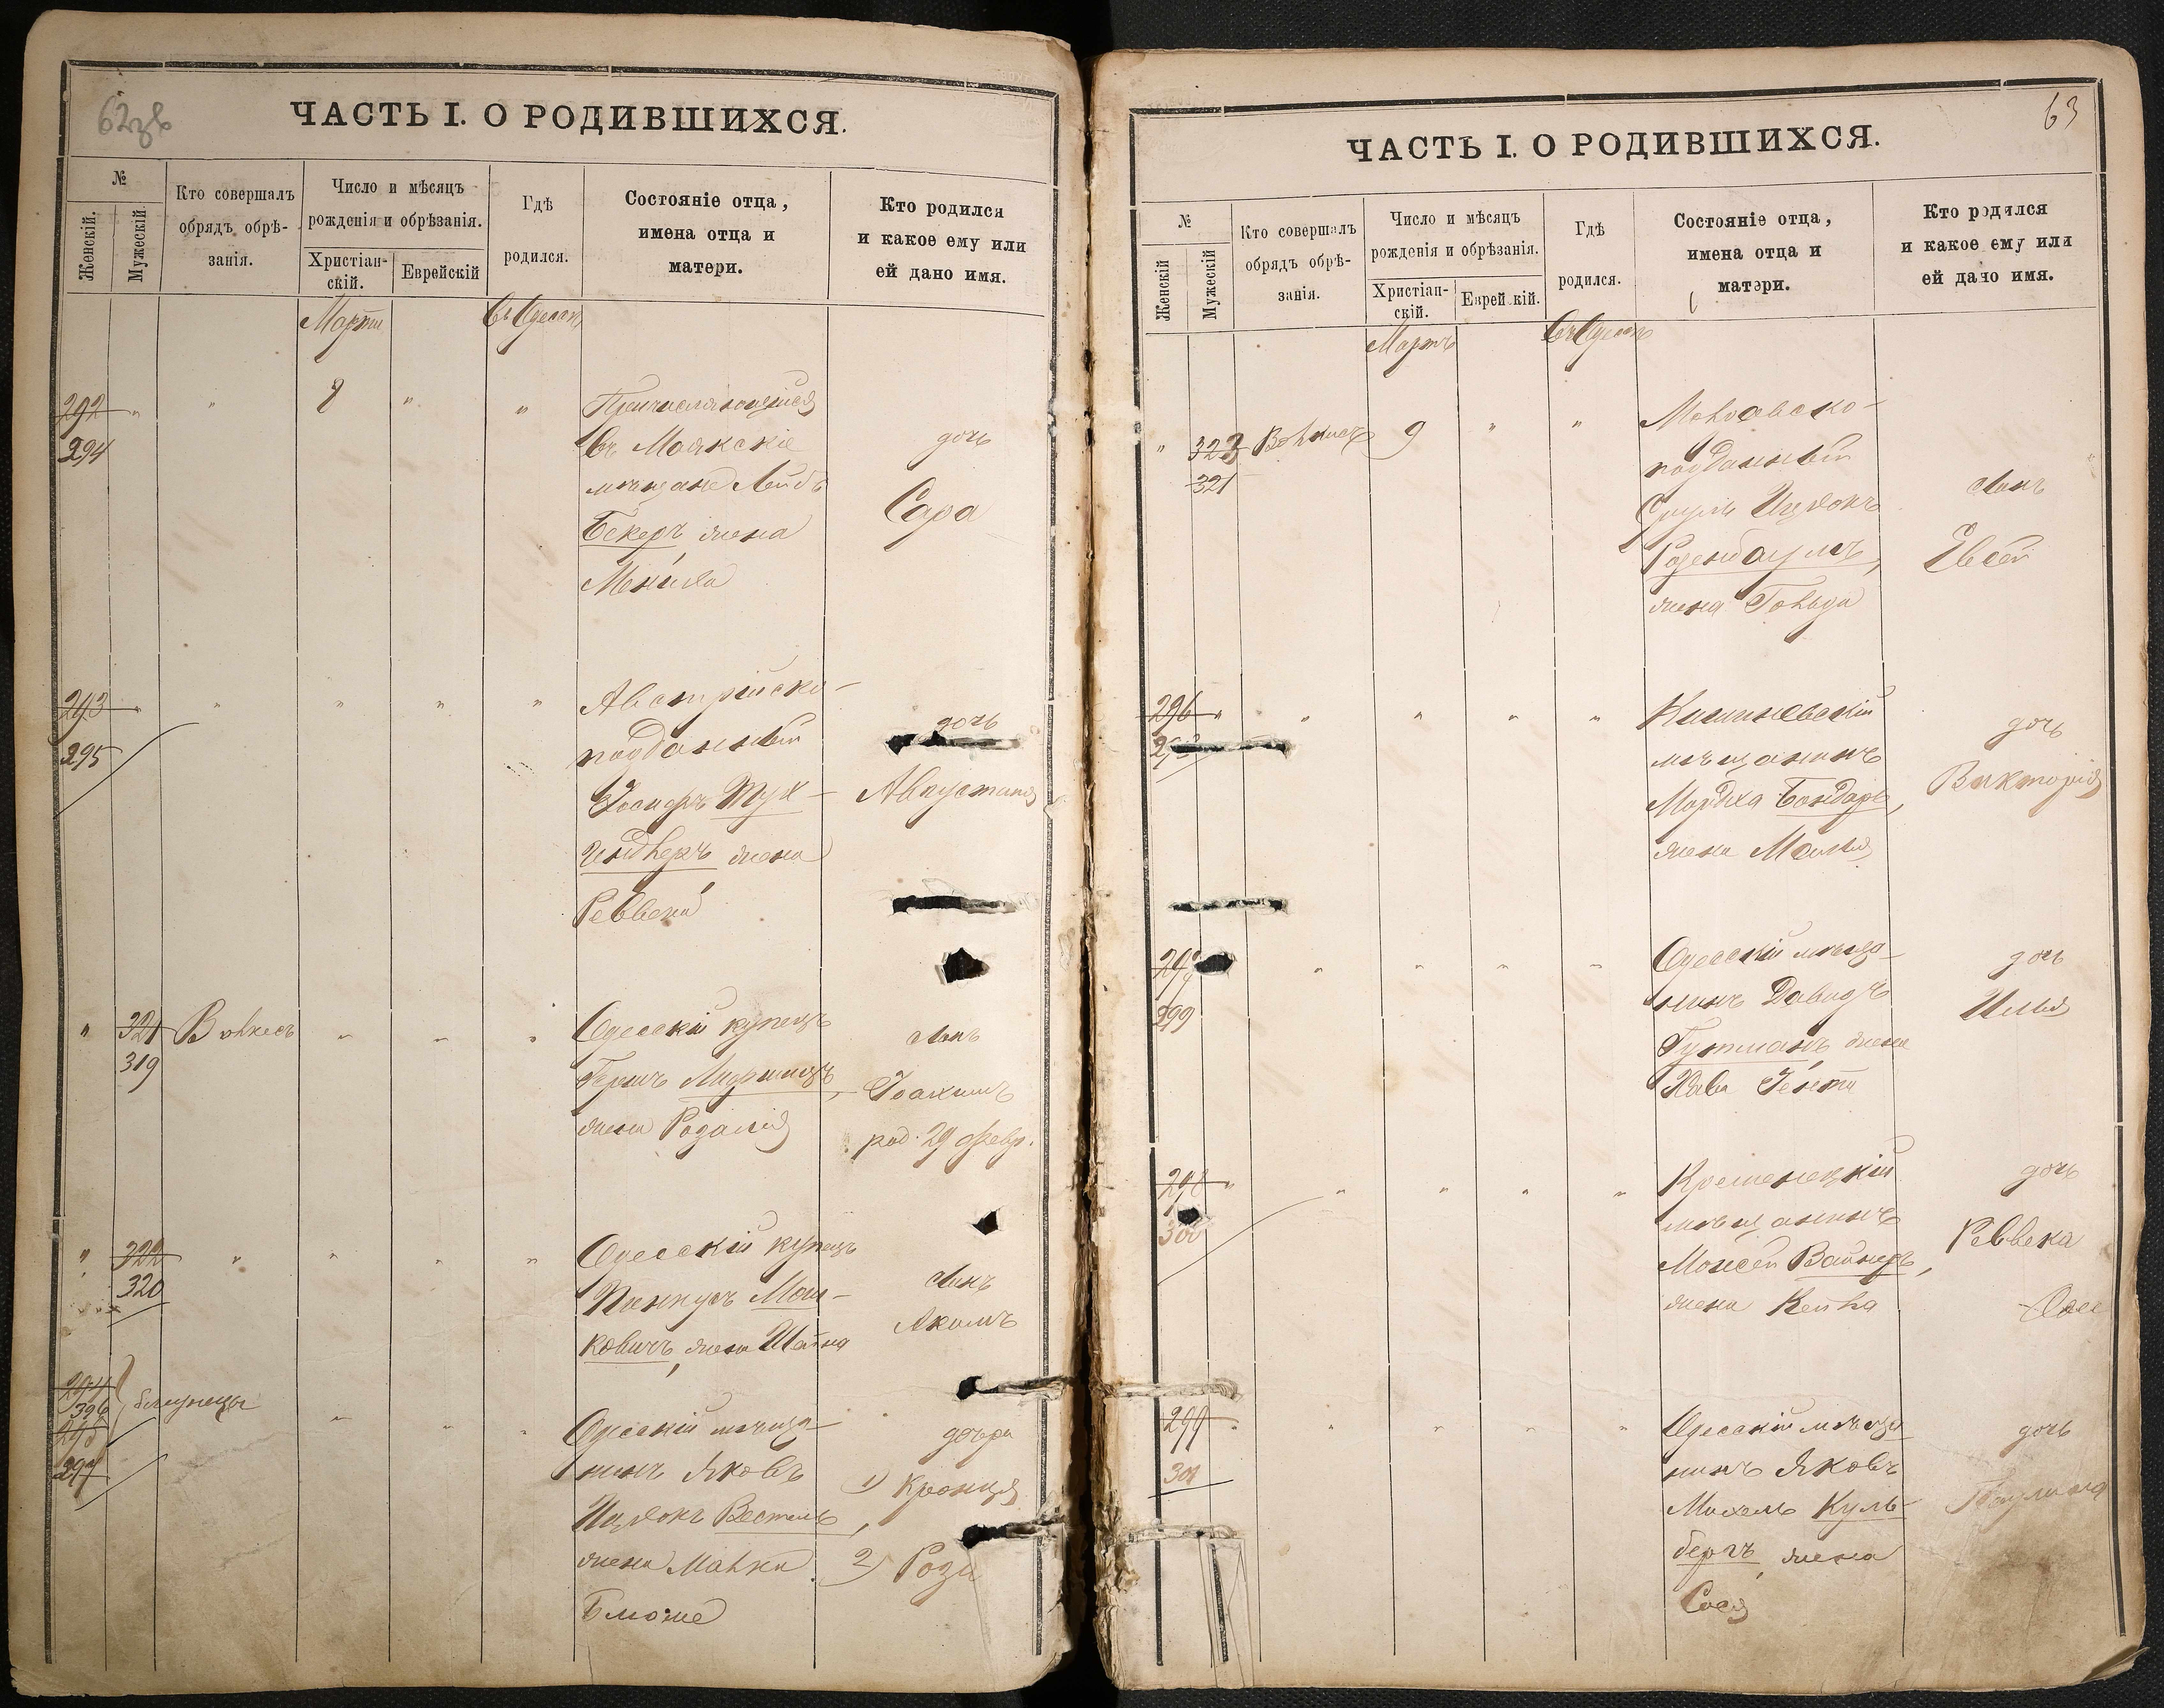 62 зв
ЧАСТЬ I. О РОДИВШИХСЯ.
№
Женскій.
Мужескій.
Кто совершалъ
обрядъ обрѣ-
занія.
Число и мѣсяцъ
рожденія и обрѣзанія.
Христіан-
скій.
Еврейскій
Гдѣ
родился.
Состояніе отца,
имена отца и
матери.
Кто родился
и какое ему или
ей дано имя.
Мартъ
въ Одессѣ
292 " " 8 " "
294
Причисляющійся
въ Маякскіе
мѣщане Лейбъ
Бекеръ, жена
дочь
Сара
293 " " " " "
295
Австрійско-
подданный
Іосифъ
жена
Реввека
дочь
Августина
" 321 Волкесъ " " "
319
Одесскій купецъ
Гершъ Лифшицъ,
жена Розалія
сынъ
Іоахимъ
род. 29 февр.
" 322 " " " "
320
Одесскій купецъ
Пинкусъ Мош-
ковичъ, жена Шейна
сынъ
Акимъ
294
396
близнецы
295
297
Одесскій мѣща-
нинъ Яковъ
Ицхокъ Вестель,
жена Малка
дочери
1) Кронця
2) Роза
63
ЧАСТЬ I. О РОДИВШИХСЯ.
№
Женскій
Мужескій
Кто совершалъ
обрядъ обрѣ-
занія.
Число и мѣсяцъ
рожденія и обрѣзанія.
Христіан-
скій.
Еврейскій.
Гдѣ
родился.
Состояніе отца,
имена отца и
матери.
Кто родился
и какое ему или
ей дано имя.
Мартъ
въ Одессѣ
" 323 Волкесъ 9 " "
321
Молдавско-
подданный
Сруль Ицхокъ
Розенбаумъ,
жена Гольда
сынъ
Евсей
296 " " " " "
Кишиневскій
мѣщанинъ
Мордха Бондарь,
жена Малья
дочь
Викторія
299
Одесскій мѣща-
нинъ Давидъ
Гутманъ, жена
Хава Гентя
дочь
298 " " " " "
300
Кременецкій
мѣщанинъ
Моисей Вайнеръ,
жена Кейла
дочь
Реввека
299 " " " " "
301
Одесскій мѣща-
нинъ Яковъ
Михель Куль-
бергъ, жена
Сося
дочь
Паулина